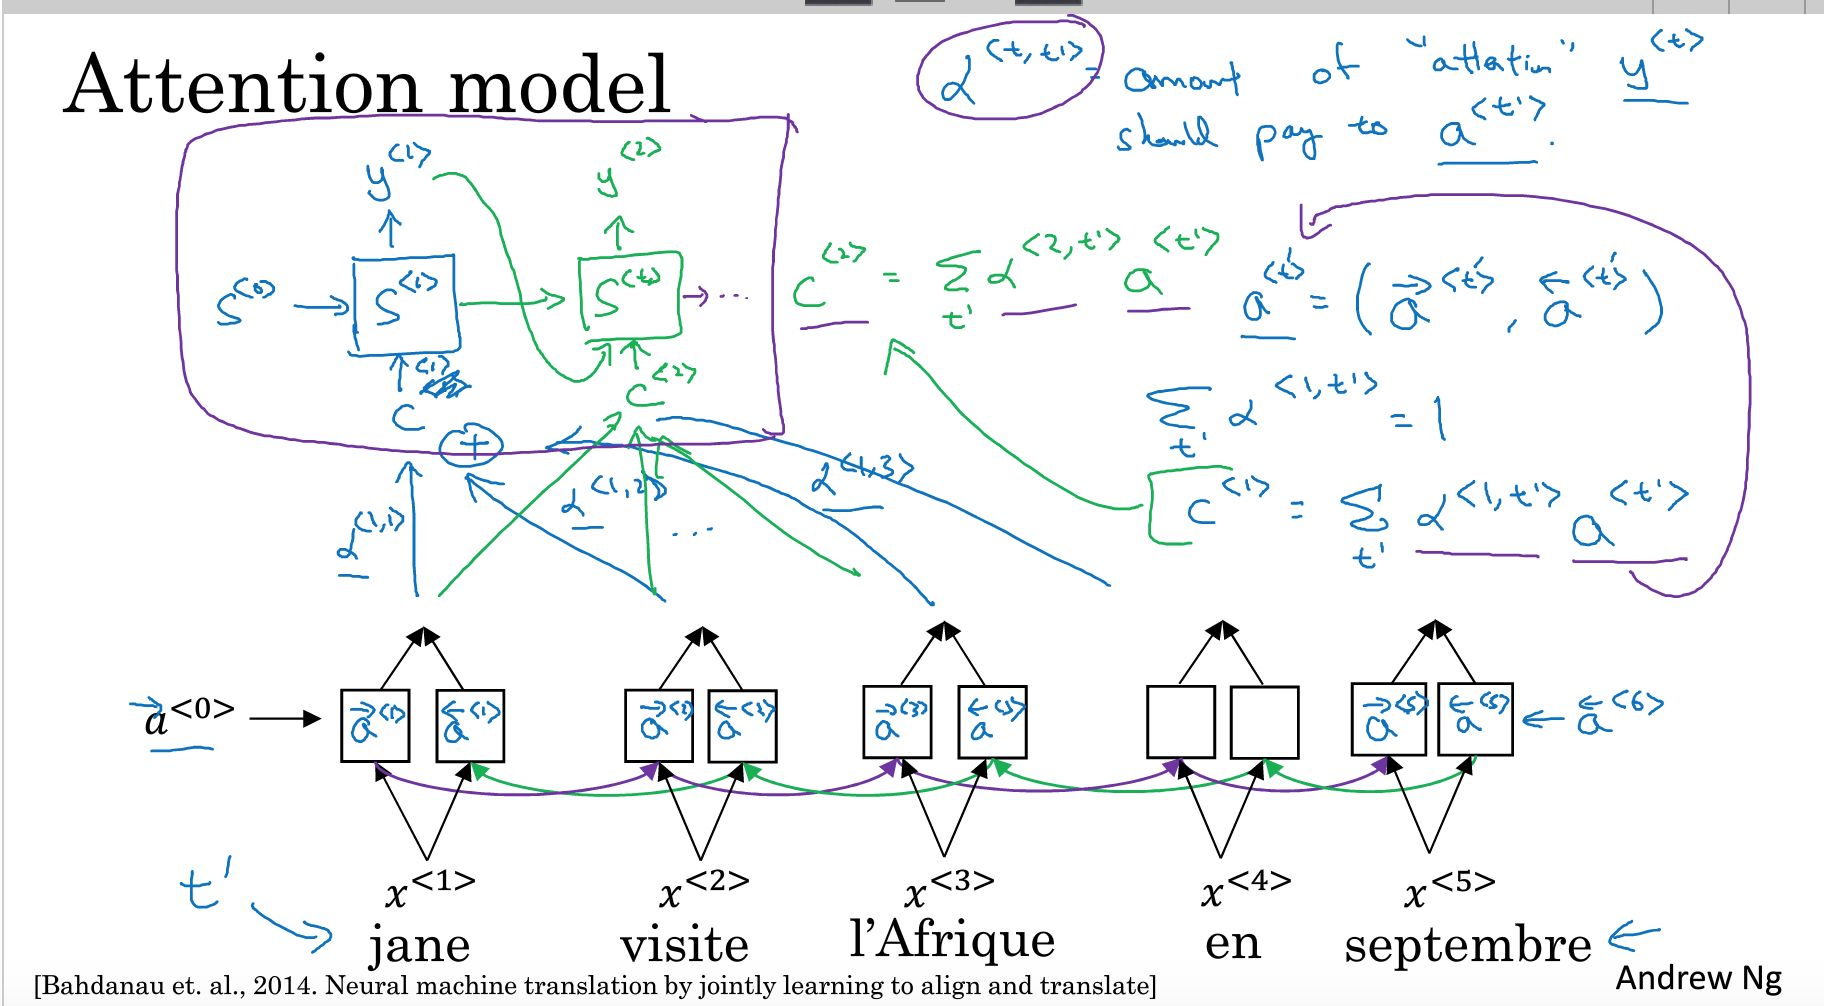 Attention model
α<t,t'> = amount of "attention" y<t>
should pay to a<t'>.
y<1>
y<2>
s<0> → s<1> → s<t> → ...
c<1>
c<2>
c<2> = Σt' α<2,t'> a<t'>
a<t'> = (→a<t'>, ←a<t'>)
Σt' α<1,t'> = 1
c<1> = Σt' α<1,t'> a<t'>
+
α<1,1>
α<1,2>
α<1,3>
...
→a<0>
→a<1> ←a<1>
→a<2> ←a<2>
→a<3> ←a<3>
→a<5> ←a<5>
← ←a<6>
t'
x<1> x<2> x<3> x<4> x<5>
jane visite l'Afrique en septembre
[Bahdanau et. al., 2014. Neural machine translation by jointly learning to align and translate]
Andrew Ng